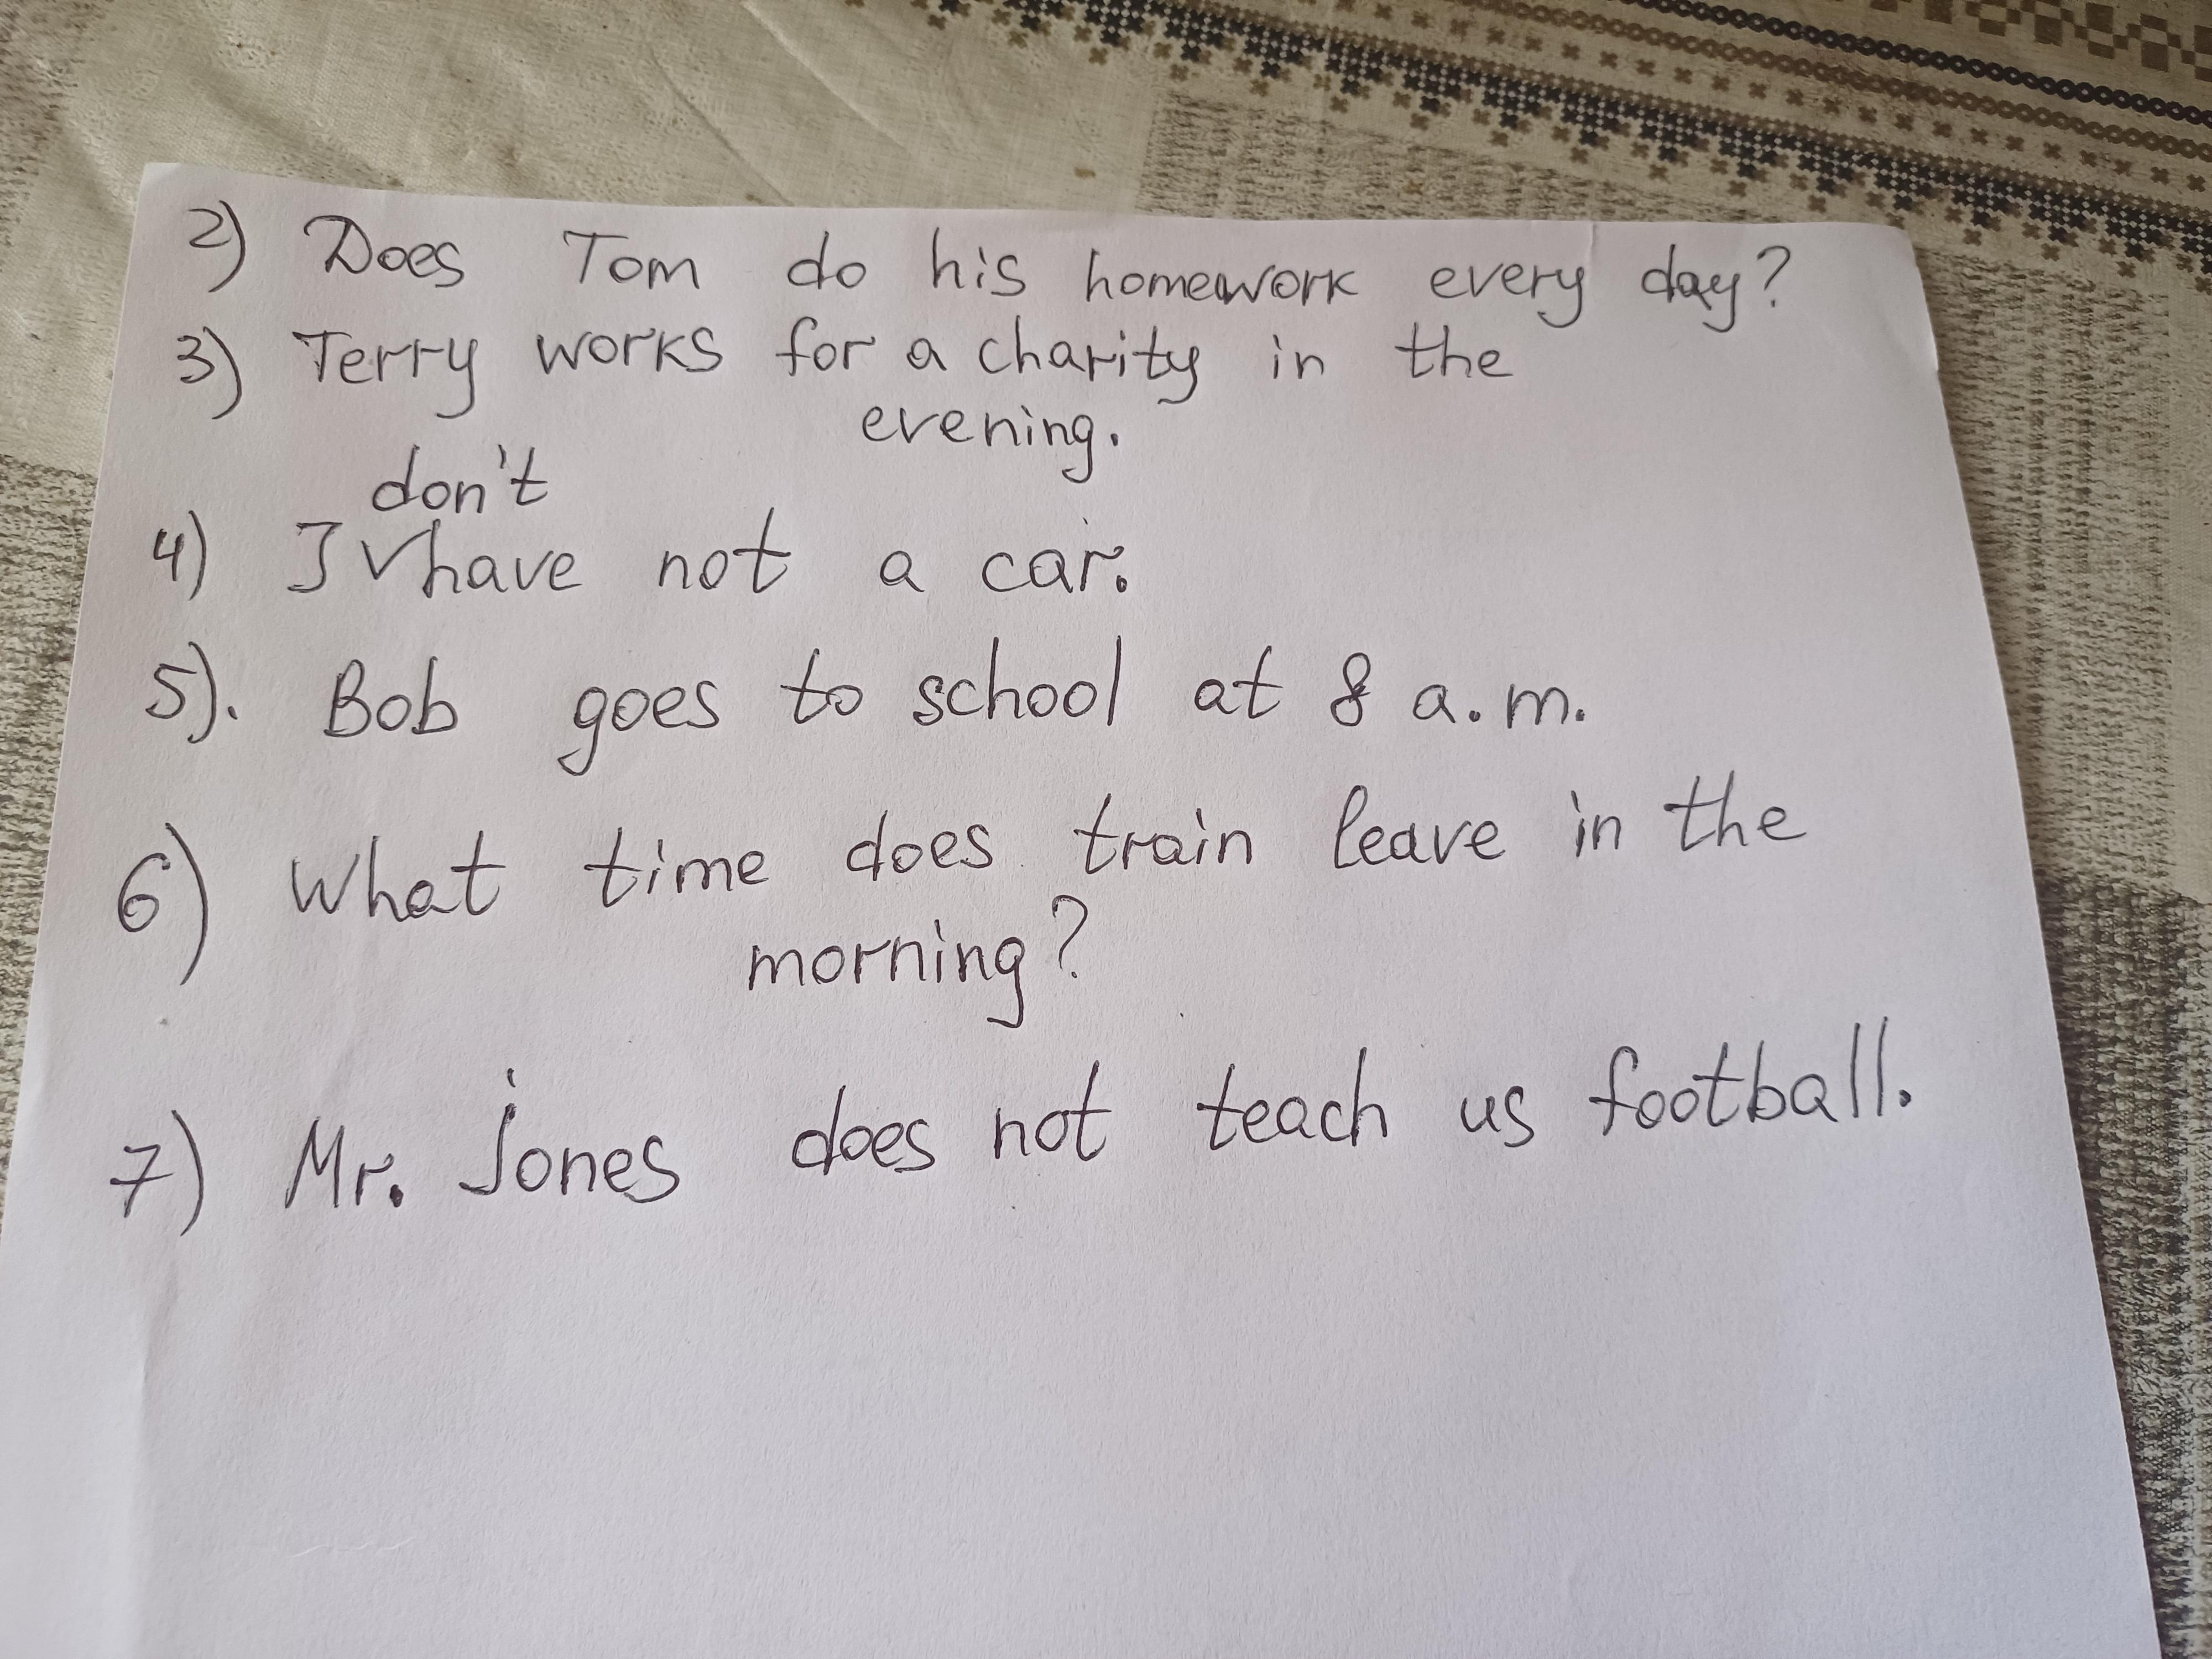 2) Does Tom do his homework every day?
3) Terry works for a charity in the
evening.
don't
4) I √have not a car.
5). Bob goes to school at 8 a.m.
6) What time does train leave in the
morning?
7) Mr. Jones does not teach us football.